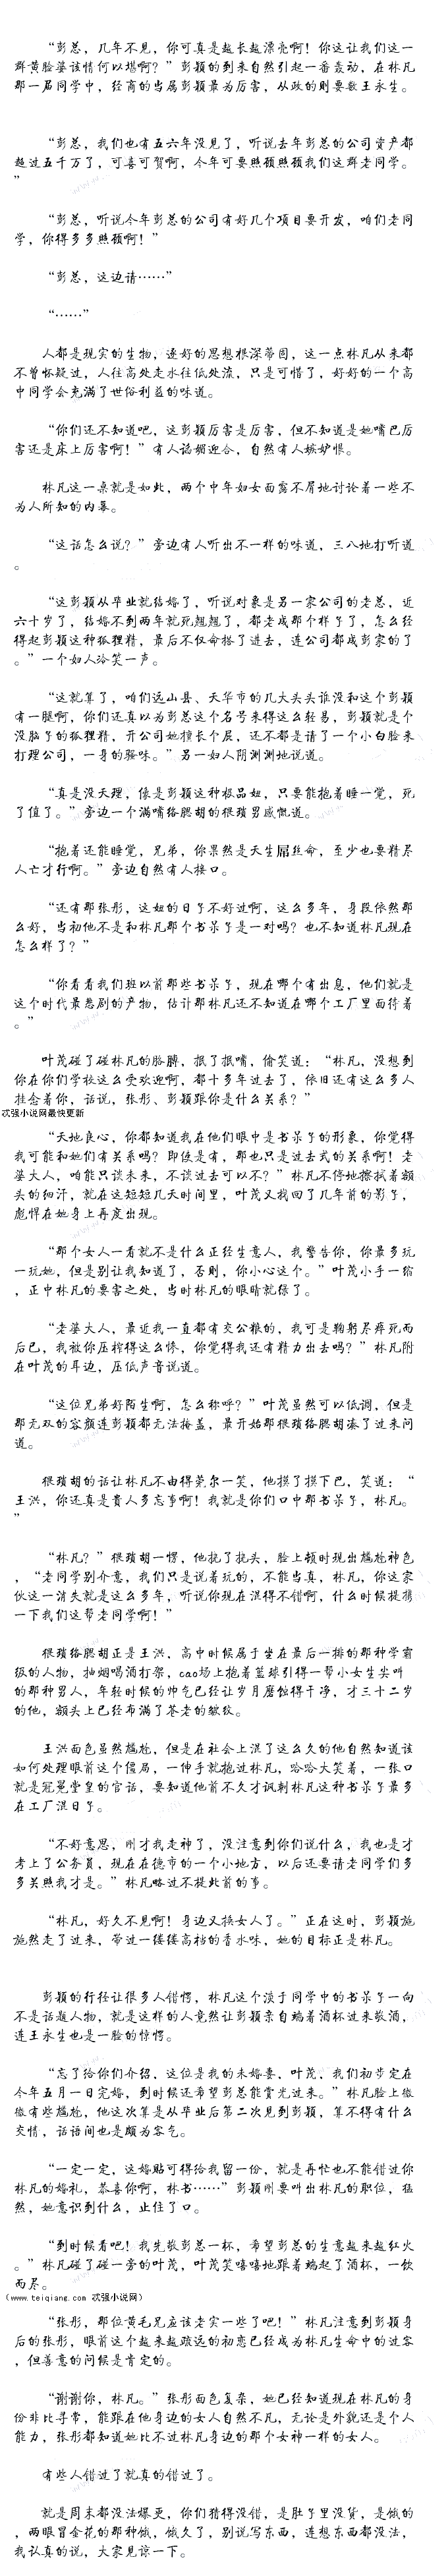 “彭总，几年不见，你可真是越长越漂亮啊！你这让我们这一
群黄脸婆该情何以堪啊？”彭颖的到来自然引起一番轰动，在林凡
那一届同学中，经商的当属彭颖最为厉害，从政的则要数王永生。
“彭总，我们也有五六年没见了，听说去年彭总的公司资产都
超过五千万了，可喜可贺啊，今年可要照顾照顾我们这群老同学。
”
“彭总，听说今年彭总的公司有好几个项目要开发，咱们老同
学，你得多多照顾啊！”
“彭总，这边请……”
“……”
人都是现实的生物，这好的思想根深蒂固，这一点林凡从来都
不曾怀疑过，人往高处走水往低处流，只是可惜了，好好的一个高
中同学会充满了世俗利益的味道。
“你们还不知道吧，这彭颖厉害是厉害，但不知道是她嘴巴厉
害还是床上厉害啊！”有人谄媚迎合，自然有人嫉妒恨。
林凡这一桌就是如此，两个中年妇女面露不屑地讨论着一些不
为人所知的内幕。
“这话怎么说？”旁边有人听出不一样的味道，三八地打听道
。
“这彭颖从毕业就结婚了，听说对象是另一家公司的老总，近
六十岁了，结婚不到两年就死翘翘了，都老成那个样子了，怎么经
得起彭颖这种狐狸精，最后不仅命搭了进去，连公司都成彭家的了
。”一个妇人冷笑一声。
“这就算了，咱们远山县、天华市的几大头头谁没和这个彭颖
有一腿啊，你们还真以为彭总这个名号来得这么轻易，彭颖就是个
没脑子的狐狸精，开公司她懂个个屁，还不都是请了一个小白脸来
打理公司，一身的骚味。”另一妇人阴测测地说道。
“真是没天理，像是彭颖这种极品妞，只要能抱着睡一觉，死
了值了。”旁边一个满嘴络腮胡的猥琐男感慨道。
“抱着还能睡觉，兄弟，你果然是天生屌丝命，至少也要精尽
人亡才行啊。”旁边自然有人接口。
“还有那张彤，这妞的日子不好过啊，这么多年，身段依然那
么好，当初他不是和林凡那个书呆子是一对吗？也不知道林凡现在
怎么样了？”
“你看看我们班以前那些书呆子，现在哪个有出息，他们就是
这个时代最悲剧的产物，估计那林凡还不知道在哪个工厂里面待着
。”
叶茂碰了碰林凡的胳膊，抿了抿嘴，偷笑道：“林凡，没想到
你在你们学校这么受欢迎啊，都十多年过去了，依旧还有这么多人
挂念着你，话说，张彤、彭颖跟你是什么关系？”
忒强小说网最快更新
“天地良心，你都知道我在他们眼中是书呆子的形象，你觉得
我可能和她们有关系吗？即使是有，那也只是过去式的关系啊！老
婆大人，咱能只谈未来，不谈过去可以不？”林凡不停地擦拭着额
头的细汗，就在这短短几天时间里，叶茂又找回了几年前的影子，
彪悍在她身上再度出现。
“那个女人一看就不是什么正经生意人，我警告你，你最多玩
一玩她，但是别让我知道了，否则，你小心这个。”叶茂小手一缩
，正中林凡的要害之处，当时林凡的眼睛就绿了。
“老婆大人，最近我一直都有交公粮的，我可是鞠躬尽瘁死而
后已，我被你压榨得这么惨，你觉得我还有精力出去吗？”林凡附
在叶茂的耳边，压低声音说道。
“这位兄弟好陌生啊，怎么称呼？”叶茂虽然可以低调，但是
那无双的容颜连彭颖都无法掩盖，最开始那猥琐络腮胡凑了过来问
道。
猥琐胡的话让林凡不由得莞尔一笑，他摸了摸下巴，笑道：“
王洪，你还真是贵人多忘事啊！我就是你们口中那书呆子，林凡。
”
“林凡？”猥琐胡一愣，他挠了挠头，脸上顿时现出尴尬神色
，“老同学别介意，我们只是说着玩的，不能当真，林凡，你这家
伙这一消失就是这么多年，听说你现在混得不错啊，什么时候提携
一下我们这帮老同学啊！”
猥琐络腮胡正是王洪，高中时候属于坐在最后一排的那种学霸
级的人物，抽烟喝酒打架，cao场上抱着篮球引得一帮小女生尖叫
的那种男人，年轻时候的帅气已经让岁月磨蚀得干净，才三十二岁
的他，额头上已经布满了苍老的皱纹。
王洪面色虽然尴尬，但是在社会上混了这么久的他自然知道该
如何处理眼前这个僵局，一伸手就抱过林凡，哈哈大笑着，一张口
就是冠冕堂皇的官话，要知道他前不久才讽刺林凡这种书呆子最多
在工厂混日子。
“不好意思，刚才我走神了，没注意到你们说什么，我也是才
考上了公务员，现在在德市的一个小地方，以后还要请老同学们多
多关照我才是。”林凡略过不提此前的事。
“林凡，好久不见啊！身边又换女人了。”正在这时，彭颖施
施然走了过来，带过一缕缕高档的香水味，她的目标正是林凡。
彭颖的行径让很多人错愕，林凡这个淡于同学中的书呆子一向
不是话题人物，就是这样的人竟然让彭颖亲自端着酒杯过来敬酒，
连王永生也是一脸的惊愕。
“忘了给你们介绍，这位是我的未婚妻，叶茂，我们初步定在
今年五月一日完婚，到时候还希望彭总能赏光过来。”林凡脸上微
微有些尴尬，他这次算是从毕业后第二次见到彭颖，算不得有什么
交情，话语间也是颇为客气。
“一定一定，这婚贴可得给我留一份，就是再忙也不能错过你
林凡的婚礼，恭喜你啊，林书……”彭颖刚要叫出林凡的职位，猛
然，她意识到什么，止住了口。
“到时候看吧！我先敬彭总一杯，希望彭总的生意越来越红火
。”林凡碰了碰一旁的叶茂，叶茂笑嘻嘻地跟着端起了酒杯，一饮
而尽。
（www.teiqiang.com 忒强小说网）
“张彤，那位黄毛兄应该老实一些了吧！”林凡注意到彭颖身
后的张彤，眼前这个越来越疏远的初恋已经成为林凡生命中的过客
，但善意的问候是肯定的。
“谢谢你，林凡。”张彤面色复杂，她已经知道现在林凡的身
份非比寻常，能跟在他身边的女人自然不凡，无论是外貌还是个人
能力，张彤都知道她比不过林凡身边的那个女神一样的女人。
有些人错过了就真的错过了。
就是周末都没法爆更，你们猜得没错，是肚子里没货，是饿的
，两眼冒金花的那种饿，饿久了，别说写东西，连想东西都没法，
我认真的说，大家见谅一下。